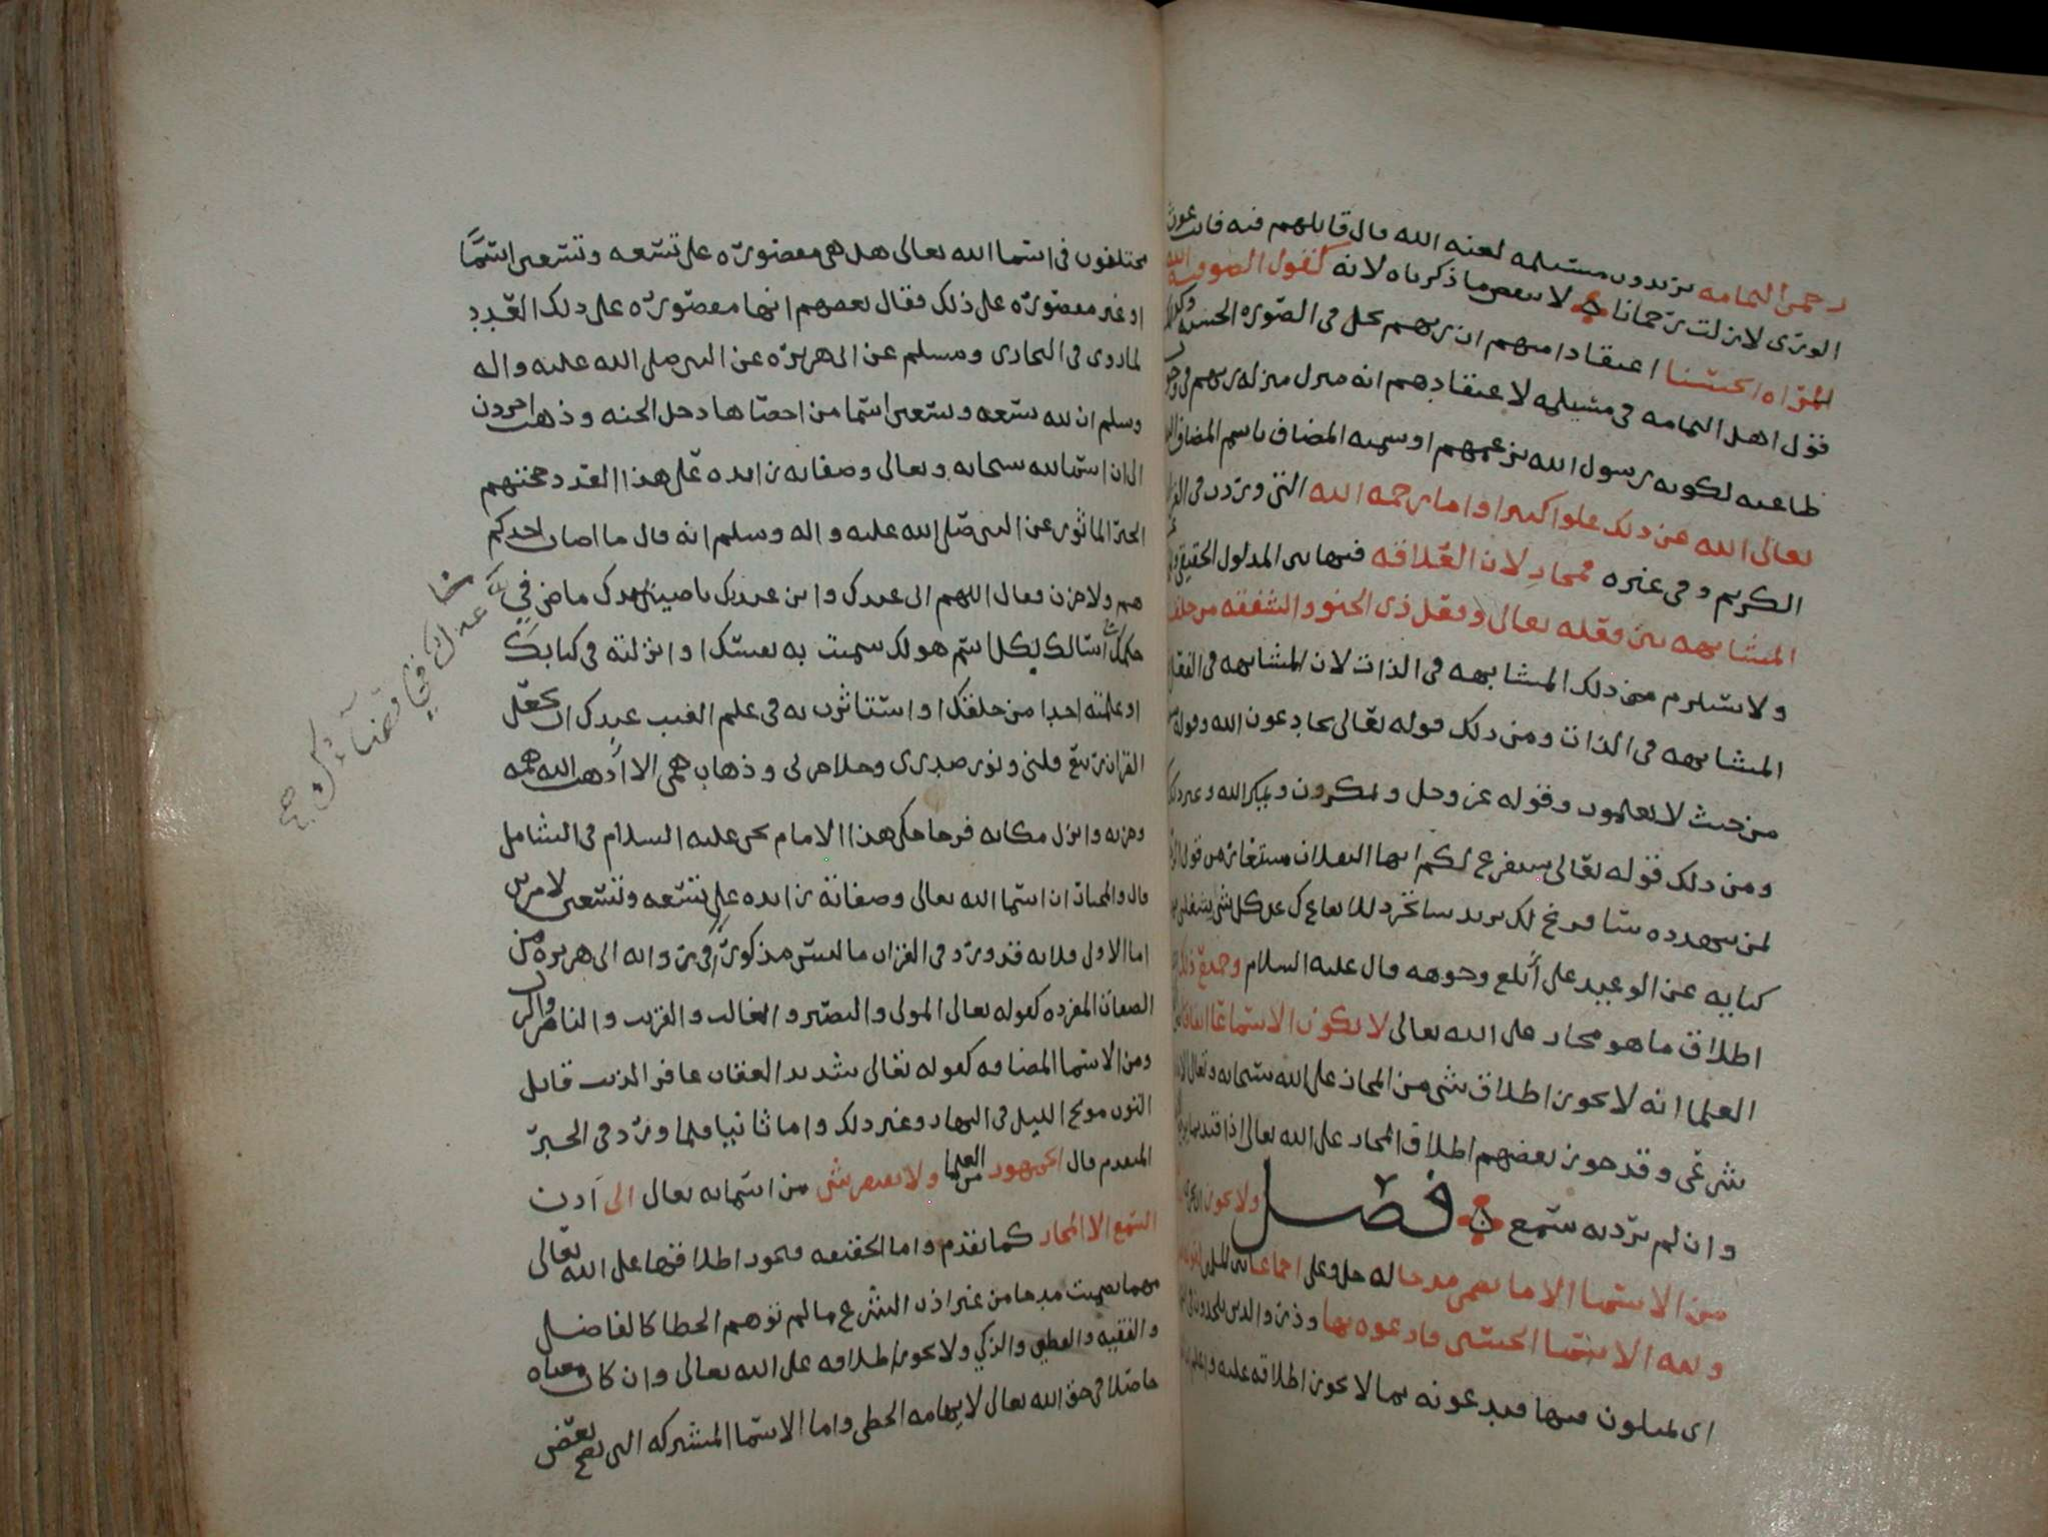 رحمن اليمامه يريدون مسيلمه لعنه الله قال قايلهم فيه فانت غوث
الورى لا زلت رحمانا لا ينقض ما ذكرناه لانه كقول الصوفيه الله
المراه الحسنا اعتقادا منهم ان ربهم يحل في الصوره الحسنه
فقول اهل اليمامه في مسيلمه لاعتقادهم انه منزل منزله ربهم في وجوب
طاعته لكونه رسول الله بزعمهم او سميه المضاف باسم المضاف
تعالى الله عن ذلك علوا كبيرا واما رحمه الله التي وردت في
الكريم وفي غيره فمجاز لان العلاقه فيها بين المدلول الحقيقي
المشابهه بين فعله تعالى وفعل ذي الحنو والشفقه من خلقه
ولا يستلزم من ذلك المشابهه في الذات لان المشابهه في الفعل
المشابهه في الذات ومن ذلك قوله تعالى يخادعون الله وقوله
من حيث لا يعلمون وقوله عز وجل ويمكرون ويمكر الله وغير ذلك
ومن ذلك قوله تعالى سنفرغ لكم ايها الثقلان مستعار من قول
لمن يتهدده سافرغ لك يريد ساتجرد للايقاع بك عن كل شي يشغلني
كنايه عن الوعيد على ابلغ وجوهه قال عليه السلام وجميع ذلك
اطلاق ما هو مجاز على الله تعالى لا يكون الا سماعا
العلما انه لا يجوز اطلاق شي من المجاز على الله سبحانه وتعالى الا
شرعي وقد جوز بعضهم اطلاق المجاز على الله تعالى اذا قيد بما
وان لم يرد به سمع فصل ولا يجوز
من الاسما الا ما تضمن مدحا له جل وعلى اجماعا بين المسلمين
ولله الاسما الحسنى فادعوه بها وذروا الذين يلحدون في
اي يميلون فيها فيدعونه بما لا يجوز اطلاقه عليه
مختلفون في اسما الله تعالى هل هي مقصوره على تسعه وتسعين اسما
او غير مقصوره على ذلك فقال بعضهم انها مقصوره على ذلك العدد
لما روى في البخاري ومسلم عن ابي هريره عن النبي صلى الله عليه واله
وسلم ان لله تسعه وتسعين اسما من احصاها دخل الجنه وذهب اخرون
الى ان اسما لله سبحانه وتعالى وصفاته زايده على هذا العدد محتجهم
الخبر الماثور عن النبي صلى الله عليه واله وسلم انه قال ما اصاب احدكم
هم ولا حزن فقال اللهم اني عبدك وابن عبديك ناصيتي بيدك ماض في
حكمك اسالك بكل اسم هو لك سميت به نفسك او انزلته في كتابك
او علمته احدا من خلقك او استاثرت به في علم الغيب عندك ان تجعل
القران ربيع قلبي ونور صدري وجلا حزني وذهاب همي الا اذهب الله همه
وحزنه وانزل مكانه فرحا حكى هذا الامام يحيى عليه السلام في الشامل
قال والمختار ان اسما الله تعالى وصفاته زايده على تسعه وتسعين لامرين
اما الاول فلانه قد ورد في القران ما ليس مذكورا في روايه ابي هريره من
الصفات المفرده كقوله تعالى المولى والنصير والغالب والقريب والناصر
ومن الاسما المضافه كقوله تعالى شديد العقاب غافر الذنب قابل
التوب مولج الليل في النهار وغير ذلك واما ثانيا فلما ورد في الخبر
المتقدم قال الجمهور من العلما ولا يفتقر شي من اسمايه تعالى الى اذن
السمع الا المجاز كما تقدم واما الحقيقه فيجوز اطلاقها على الله تعالى
مهما تضمنت مدحا من غير اذن الشرع ما لم توهم الخطا كالفاضل
والفقيه والفطين والذكي ولا يجوز اطلاقه على الله تعالى وان كان معناه
حاصلا في حق الله تعالى لايهامه الخطى واما الاسما المشتركه التي يصح بعض
عدل في قضاؤك صح